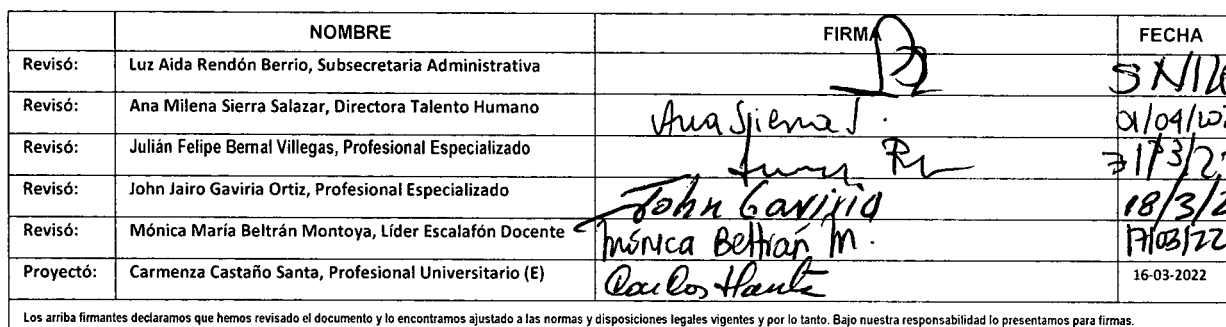 NOMBRE FIRMA FECHA
Revisó: Luz Aida Rendón Berrio, Subsecretaria Administrativa
Revisó: Ana Milena Sierra Salazar, Directora Talento Humano Ana Sierra S. 01/04/202
Revisó: Julián Felipe Bernal Villegas, Profesional Especializado 31/3/22
Revisó: John Jairo Gaviria Ortiz, Profesional Especializado John Gaviria 18/3/2
Revisó: Mónica María Beltrán Montoya, Líder Escalafón Docente Mónica Beltrán M. 17/03/22
Proyectó: Carmenza Castaño Santa, Profesional Universitario (E) 16-03-2022
Los arriba firmantes declaramos que hemos revisado el documento y lo encontramos ajustado a las normas y disposiciones legales vigentes y por lo tanto. Bajo nuestra responsabilidad lo presentamos para firmas.